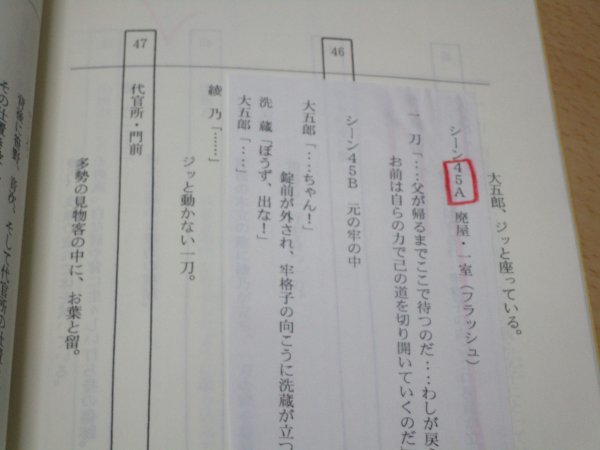 大五郎、ジッと座っている。
シーン45A 廃屋・一室(フラッシュ)
一 刀「‥‥父が帰るまでここで待つのだ‥‥わしが戻
お前は自らの力で己の道を切り開いていくのだ
46
シーン45B 元の牢の中
大五郎「‥‥ちゃん!」
錠前が外され、牢格子の向こうに洗蔵が立つ
洗 蔵「ぼうず、出な!」
大五郎「‥‥」
綾 乃「……」
ジッと動かない一刀。
47
代官所・門前
多勢の見物客の中に、お葉と留。